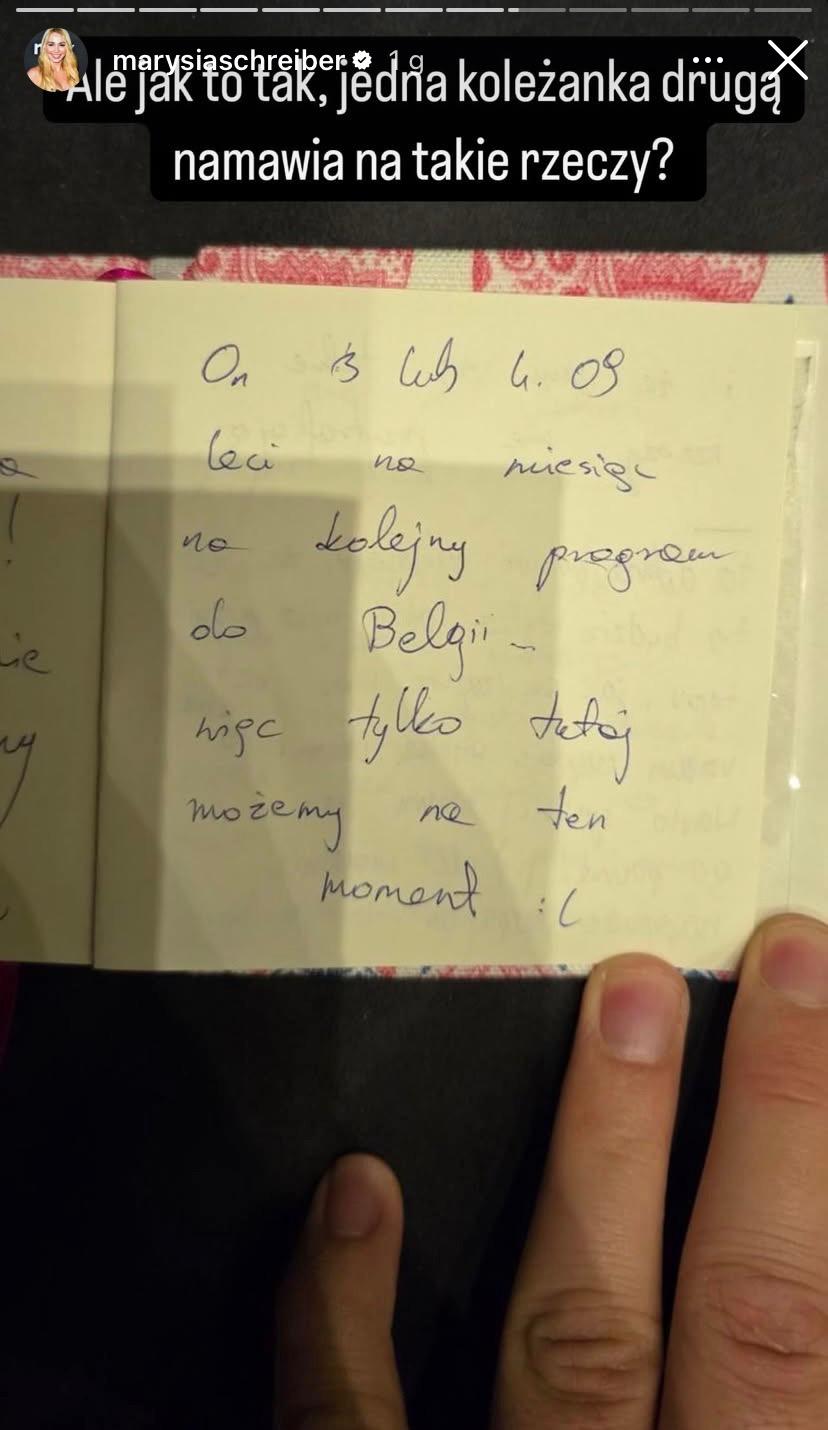 marysiaschreiber 1 g
Ale jak to tak, jedna koleżanka drugą
namawia na takie rzeczy?
On 3 lub 4. 09
leci na miesiąc
na kolejny program
do Belgii -
więc tylko tutaj
możemy na ten
moment :(